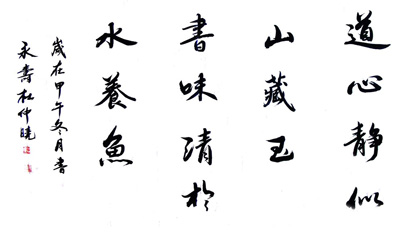 道心静似
山藏玉
書味清於
水養魚
歲在甲午冬月書
永壽杜仲曉